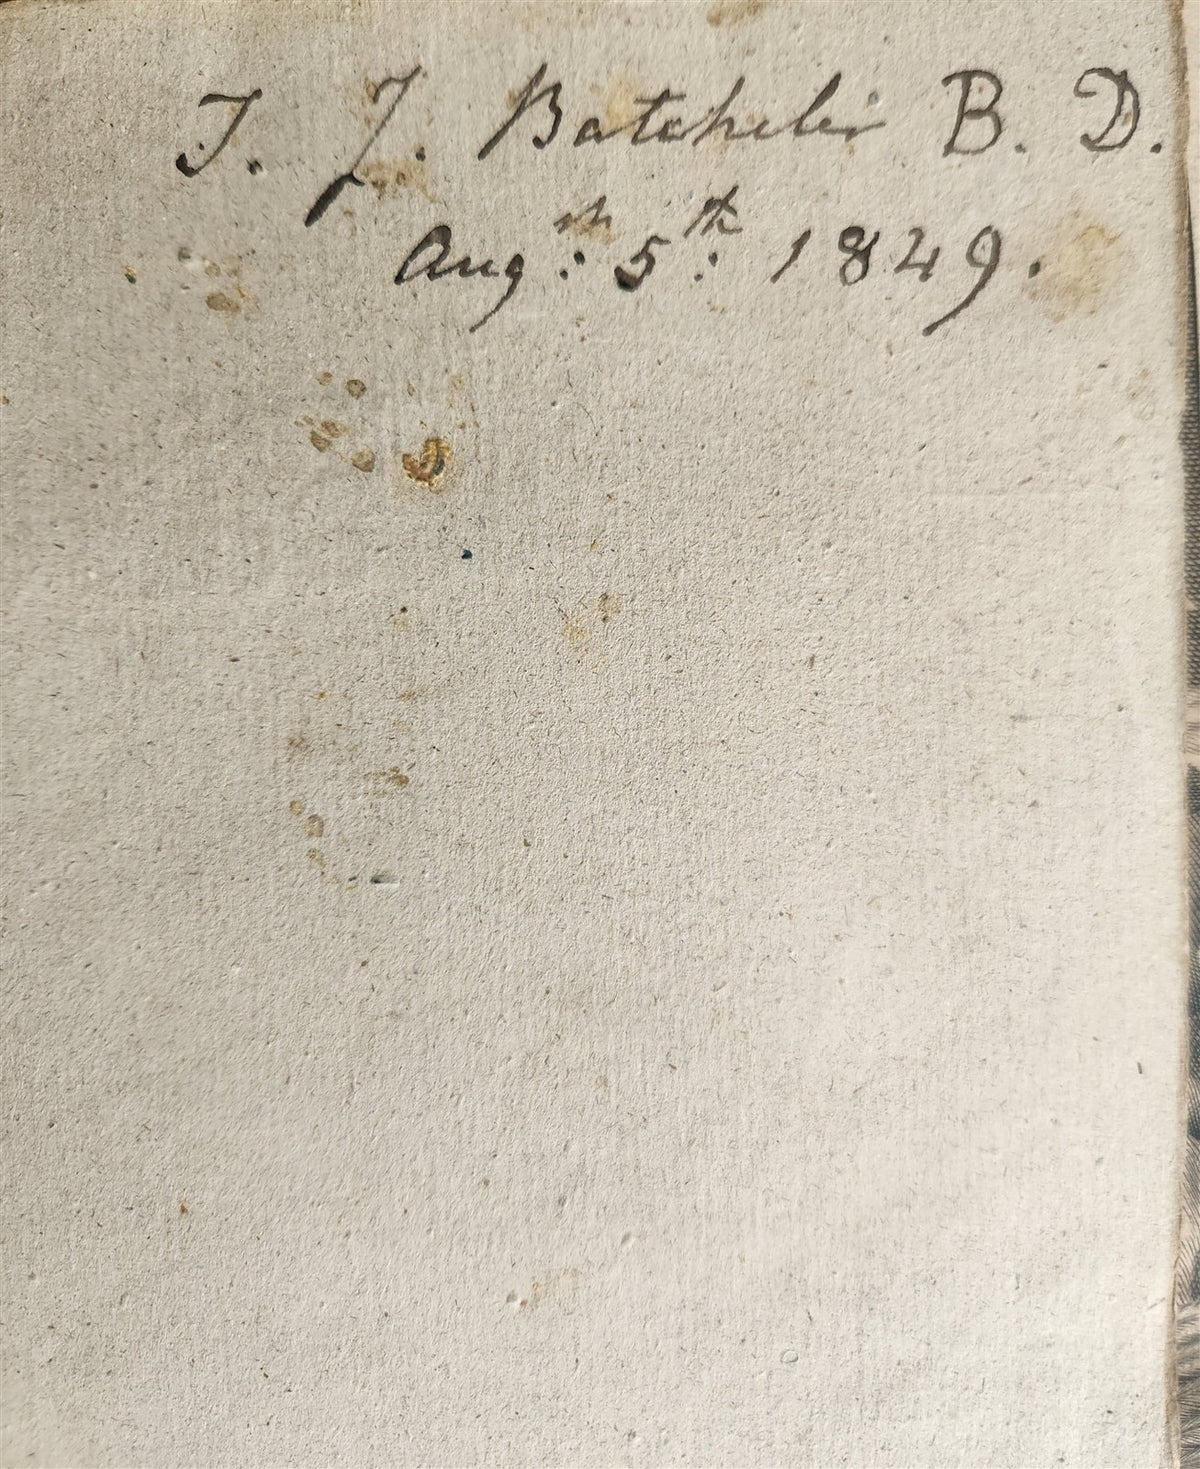 T. J. Batcheler B. D.
Aug:st 5:th 1849.